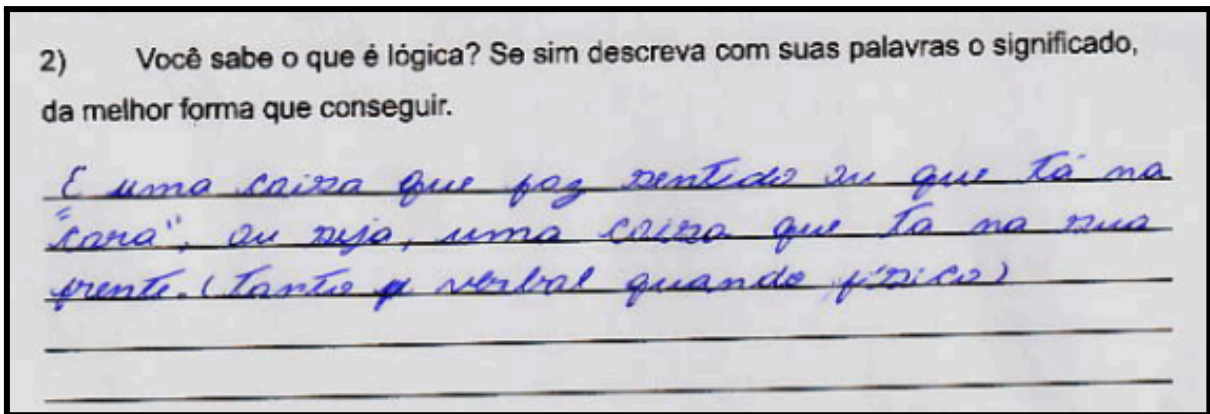 2) Você sabe o que é lógica? Se sim descreva com suas palavras o significado,
da melhor forma que conseguir.
É uma coisa que faz sentido ou que tá na
"cara", ou seja, uma coisa que tá na sua
frente. (Tanto verbal quando físico)